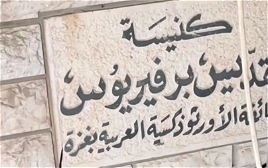 كنيسة
قديس برفيريوس
ائفة الأورثوذكسية العربية بغزة